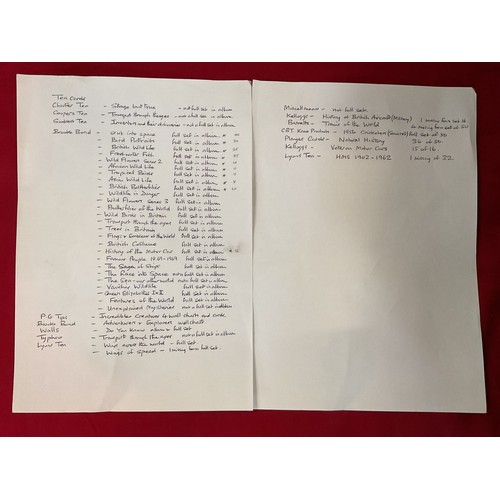 Tea Cards
Chester Tea - Strange but True - not full set in album
Coopers Tea - Transport through the ages - not a full set in album
Goodwin Tea - Inventors and their discoveries - not a full set in album
Brooke Bond - Out into Space full set in album
- Bird Portraits full set in album
- British Wild Life full set in album
- Freshwater Fish full set in album
- Wild Flowers Series 2 full set in album
- African Wild Life full set in album
- Tropical Birds full set in album
- Asian Wild Life full set in album
- British Butterflies full set in album
- Wildlife in Danger full set in album
- Wild Flowers Series 3 full set in album
- Butterflies of the World full set in album
- Wild Birds in Britain full set in album
- Transport through the ages full set in album
- Trees in Britain full set in album
- Flags & Emblems of the World full set in album
- British Costume full set in album
- History of the Motor Car full set in album
- Famous People 1869-1969 full set in album
- The Saga of Ships full set in album
- The Race into Space not a full set in album
- The Sea - our other world not a full set in album
- Vanishing Wildlife full set in album
- Queen Elizabeth I & II full set in album
- Features of the World full set in album
- Unexplained Mysteries not a full set in album
P.G Tips - Incredible Creatures 4 wall charts and cards
Brooke Bond - Adventurers & Explorers wallchart
Walls - Do You Know album & full set
Typhoo - Transport through the ages not a full set in album
Lyons Tea - Wings across the world - full set
- Wings of Speed - 1 missing from full set
Miscellaneous - not full sets
Kelloggs - History of British Aircraft (Military) 1 missing from set 16
Bassetts - Trains of the World 4 missing from set of 50
CBT Xmas Products - 1956 Cricketers full set of 30
Players Cards - Natural History 36 of 50
Kelloggs - Veteran Motor Cars 15 of 16
Lyons Tea - HMS 1902-1962 1 missing of 32